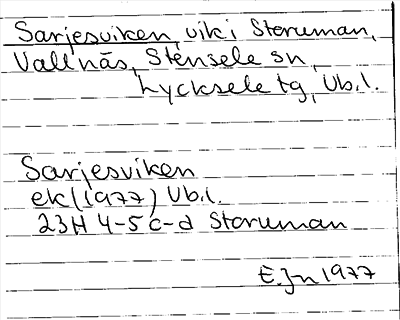 Sarjesviken, vik i Storuman,
Vallnäs, Stensele sn,
Lycksele tg, Vb.l.
Sarjesviken
ek (1977) Vb.l.
23H 4-5 c-d Storuman
E.Jn 1977